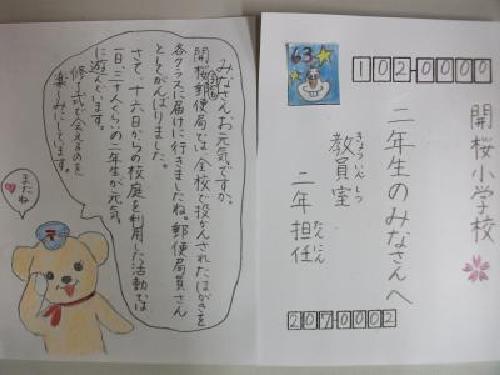 みなさんお元気ですか。
開桜郵便局では、全校で投かんされたはがきを
各クラスに届けに行きましたね。郵便局員さん
としてがんばりました。
さて、十六日からの校庭を利用した活動では
一日、三十人くらいの二年生が元気
に遊んでいます。
修了式で会えるのを
楽しみにしています。
またね
63
102-0000
開桜小学校
二年生のみなさんへ
きょういんしつ
教員室
たんにん
二年担任
207-0002